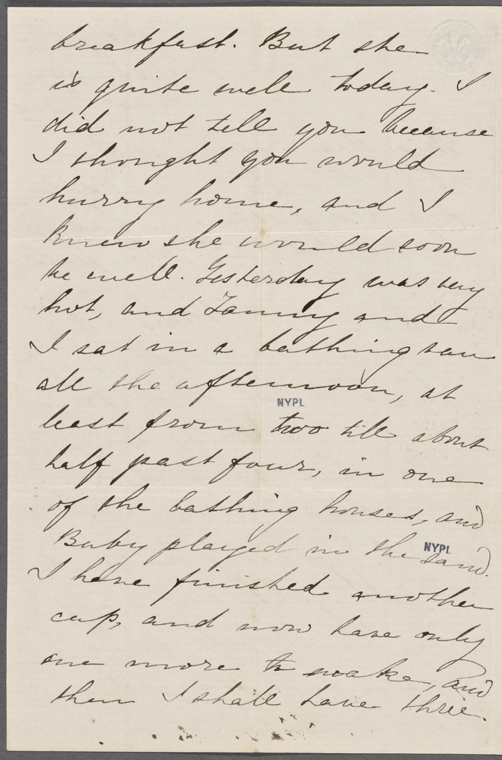 breakfast. But she
is quite well today. I
did not tell you because
I thought you would
hurry home, and I
knew she would soon
be well. Yesterday was very
hot, and Fanny and
I sat in a bathing
all the afternoon, at
least from two till about
NYPL
half past four, in one
of the bathing houses, and
Baby played in the sand.
NYPL
I have finished another
cap, and now have only
one more to make, and
then I shall have three.